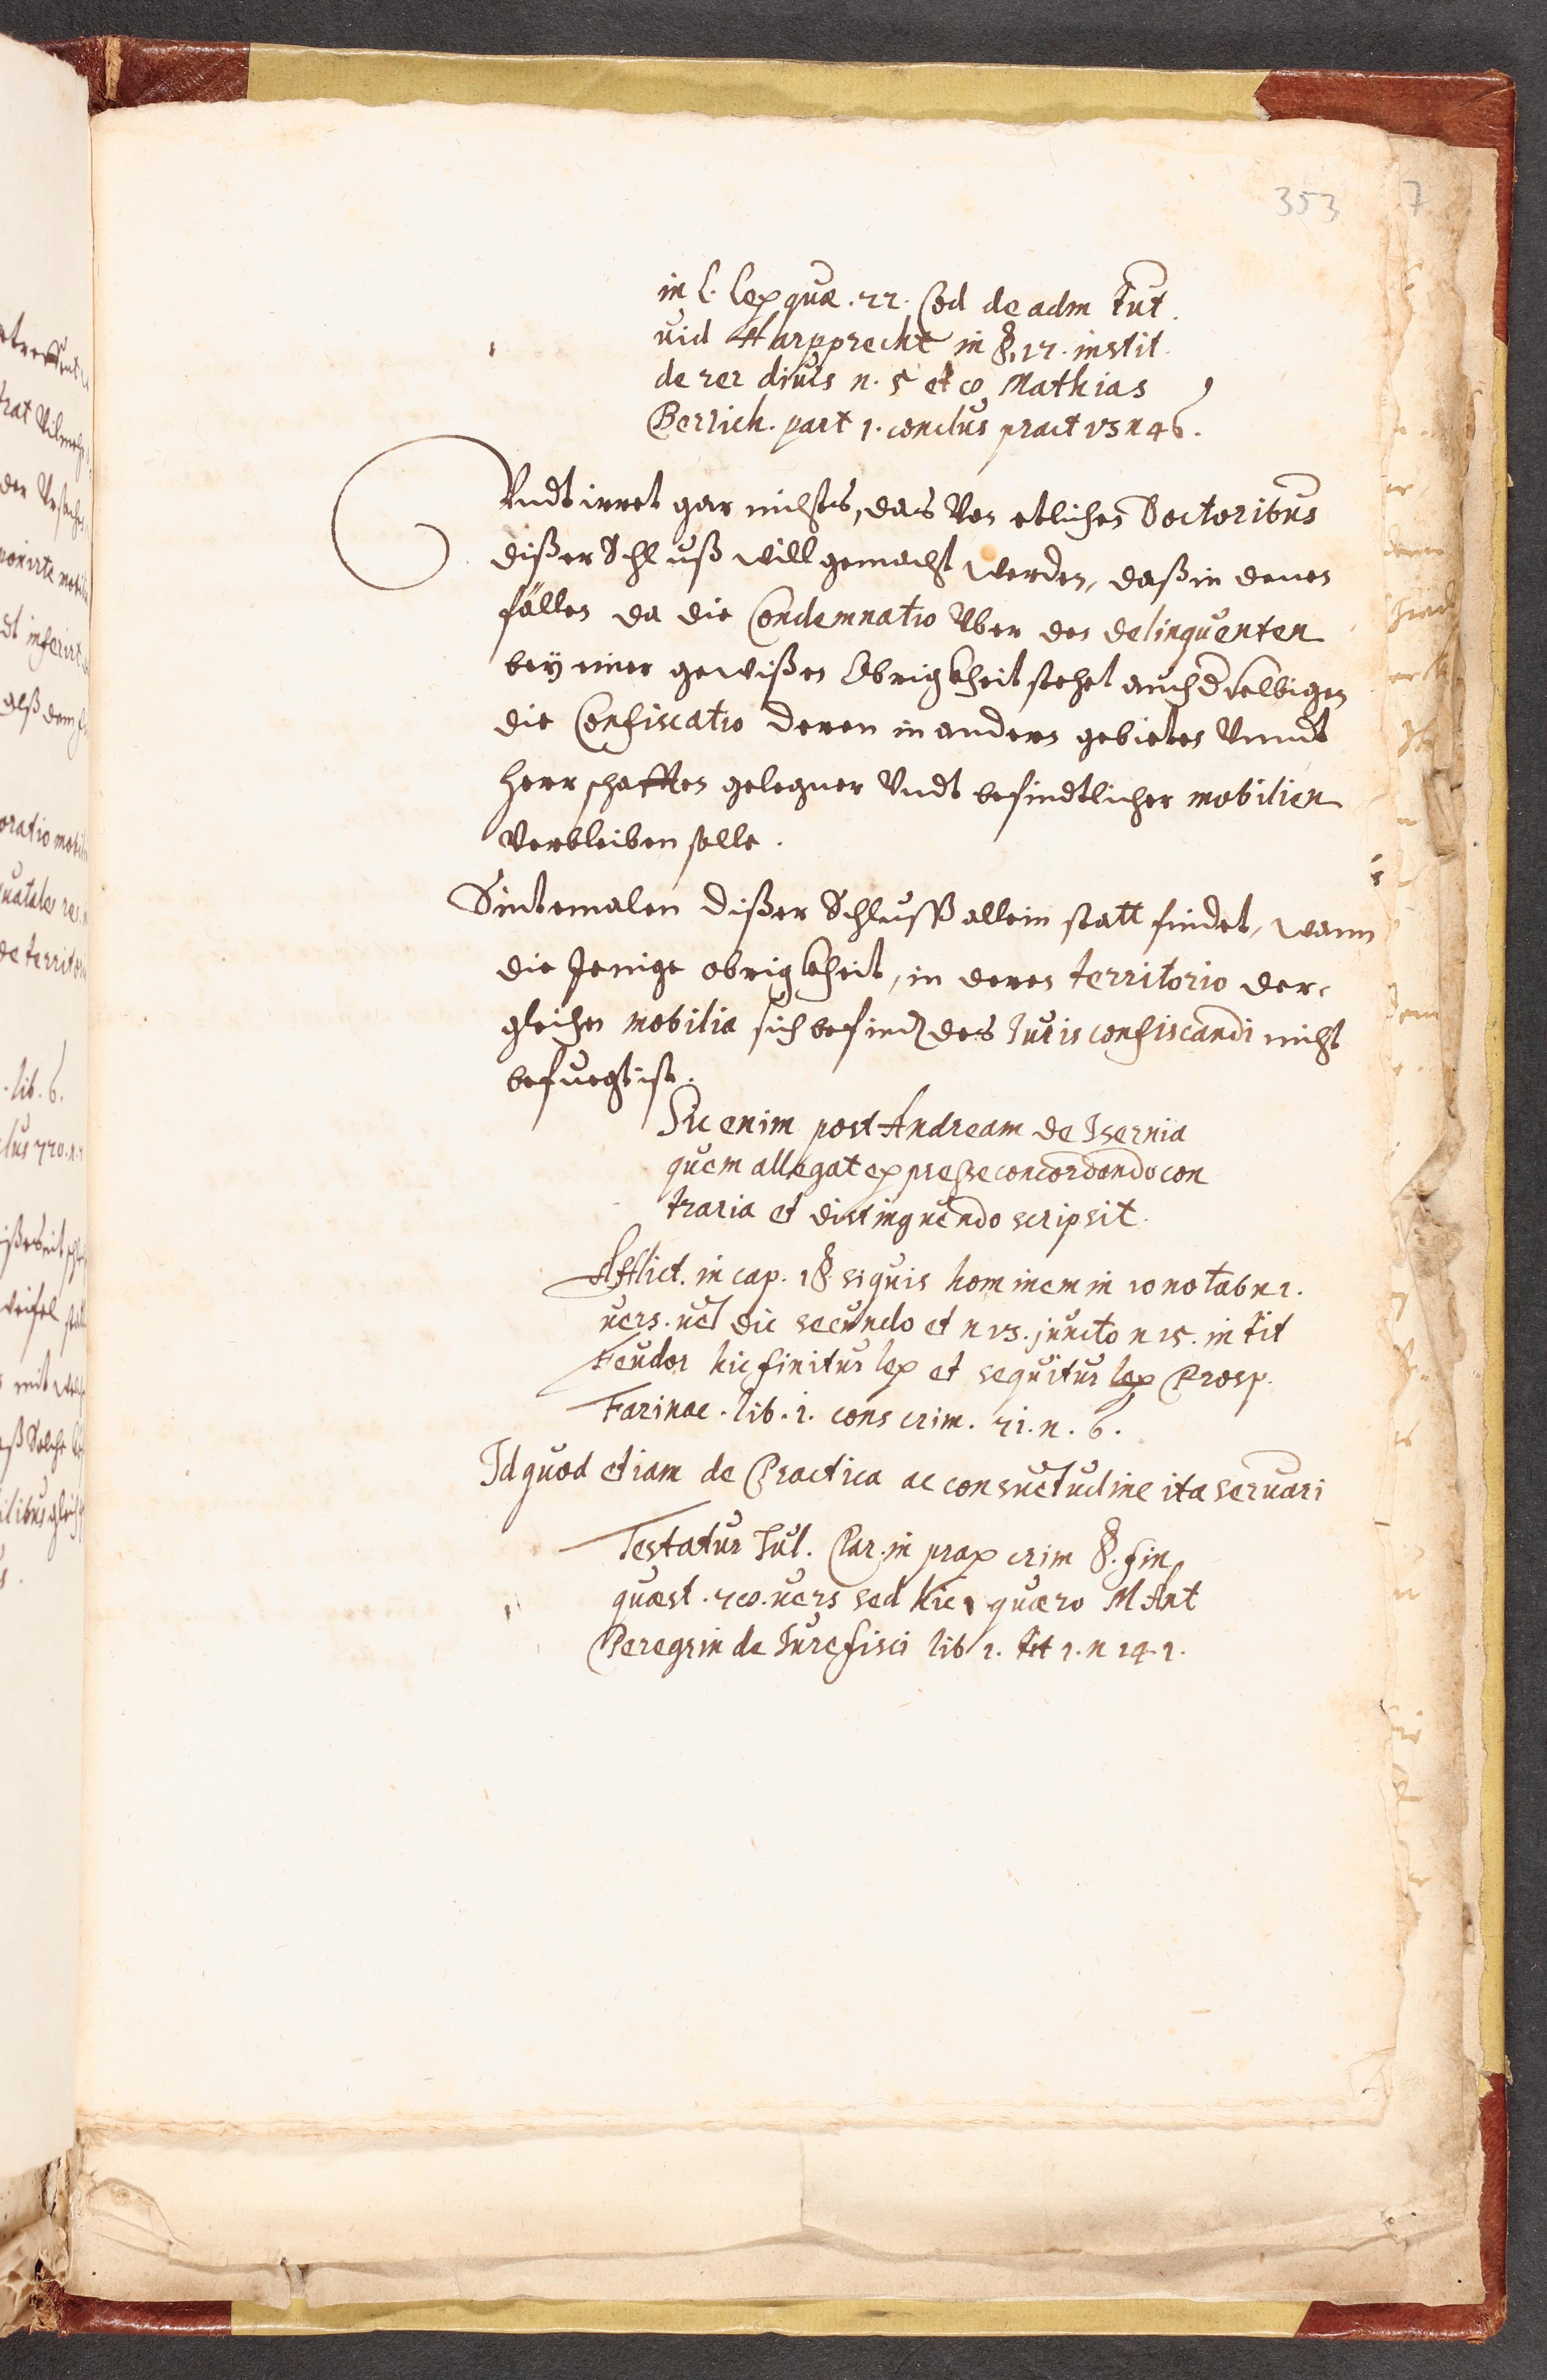 353 7
in l. lex quæ. 22. Cod de adm tut.
uid Harpprecht in §. 17. instit.
de rer diuis n. 5 et 8 Mathias
Berlich. part 1. conclus pract 13 n 46.
Vndt irret gar nichts, das Von etlichen Doctoribus
dißer Schluß will gemacht werden, daß in denen
fällen da die Condemnatio Vber den delinquenten
bey einer gewißen Obrigkheit stehet auch d selbigen
die Confiscatio deren in andern gebieten Vnndt
herrschafften gelegner Vndt befindtlicher mobilien
Verbleiben solle.
Sintemalen dißer Schlusß allein statt findet, wann
die Jenige obrigkheit, in deren territorio der-
gleichen mobilia sich befind des Iuris confiscandi nicht
befuegt ist.
Sic enim post Andream de Isernia
quem allegat expresse concordando con
traria et distinguendo scripsit.
Afflict. in cap. 1 §. si quis hominem in 10 notab n 2.
uers. uel dic secundo et n 13. juncto n 15. in tit
Feudor hic finitur lex et sequitur lex Prosp.
Farinac. lib. 1. cons crim. 71. n. 6.
Id quod etiam de Practica ac consuetudine ita seruari
Testatur Iul. Clar. in prax crim §. fin
quæst. 78. uers sed hic quæro M Ant
Peregrin de Iure fisci lib 1. tit 1. n 14 1.